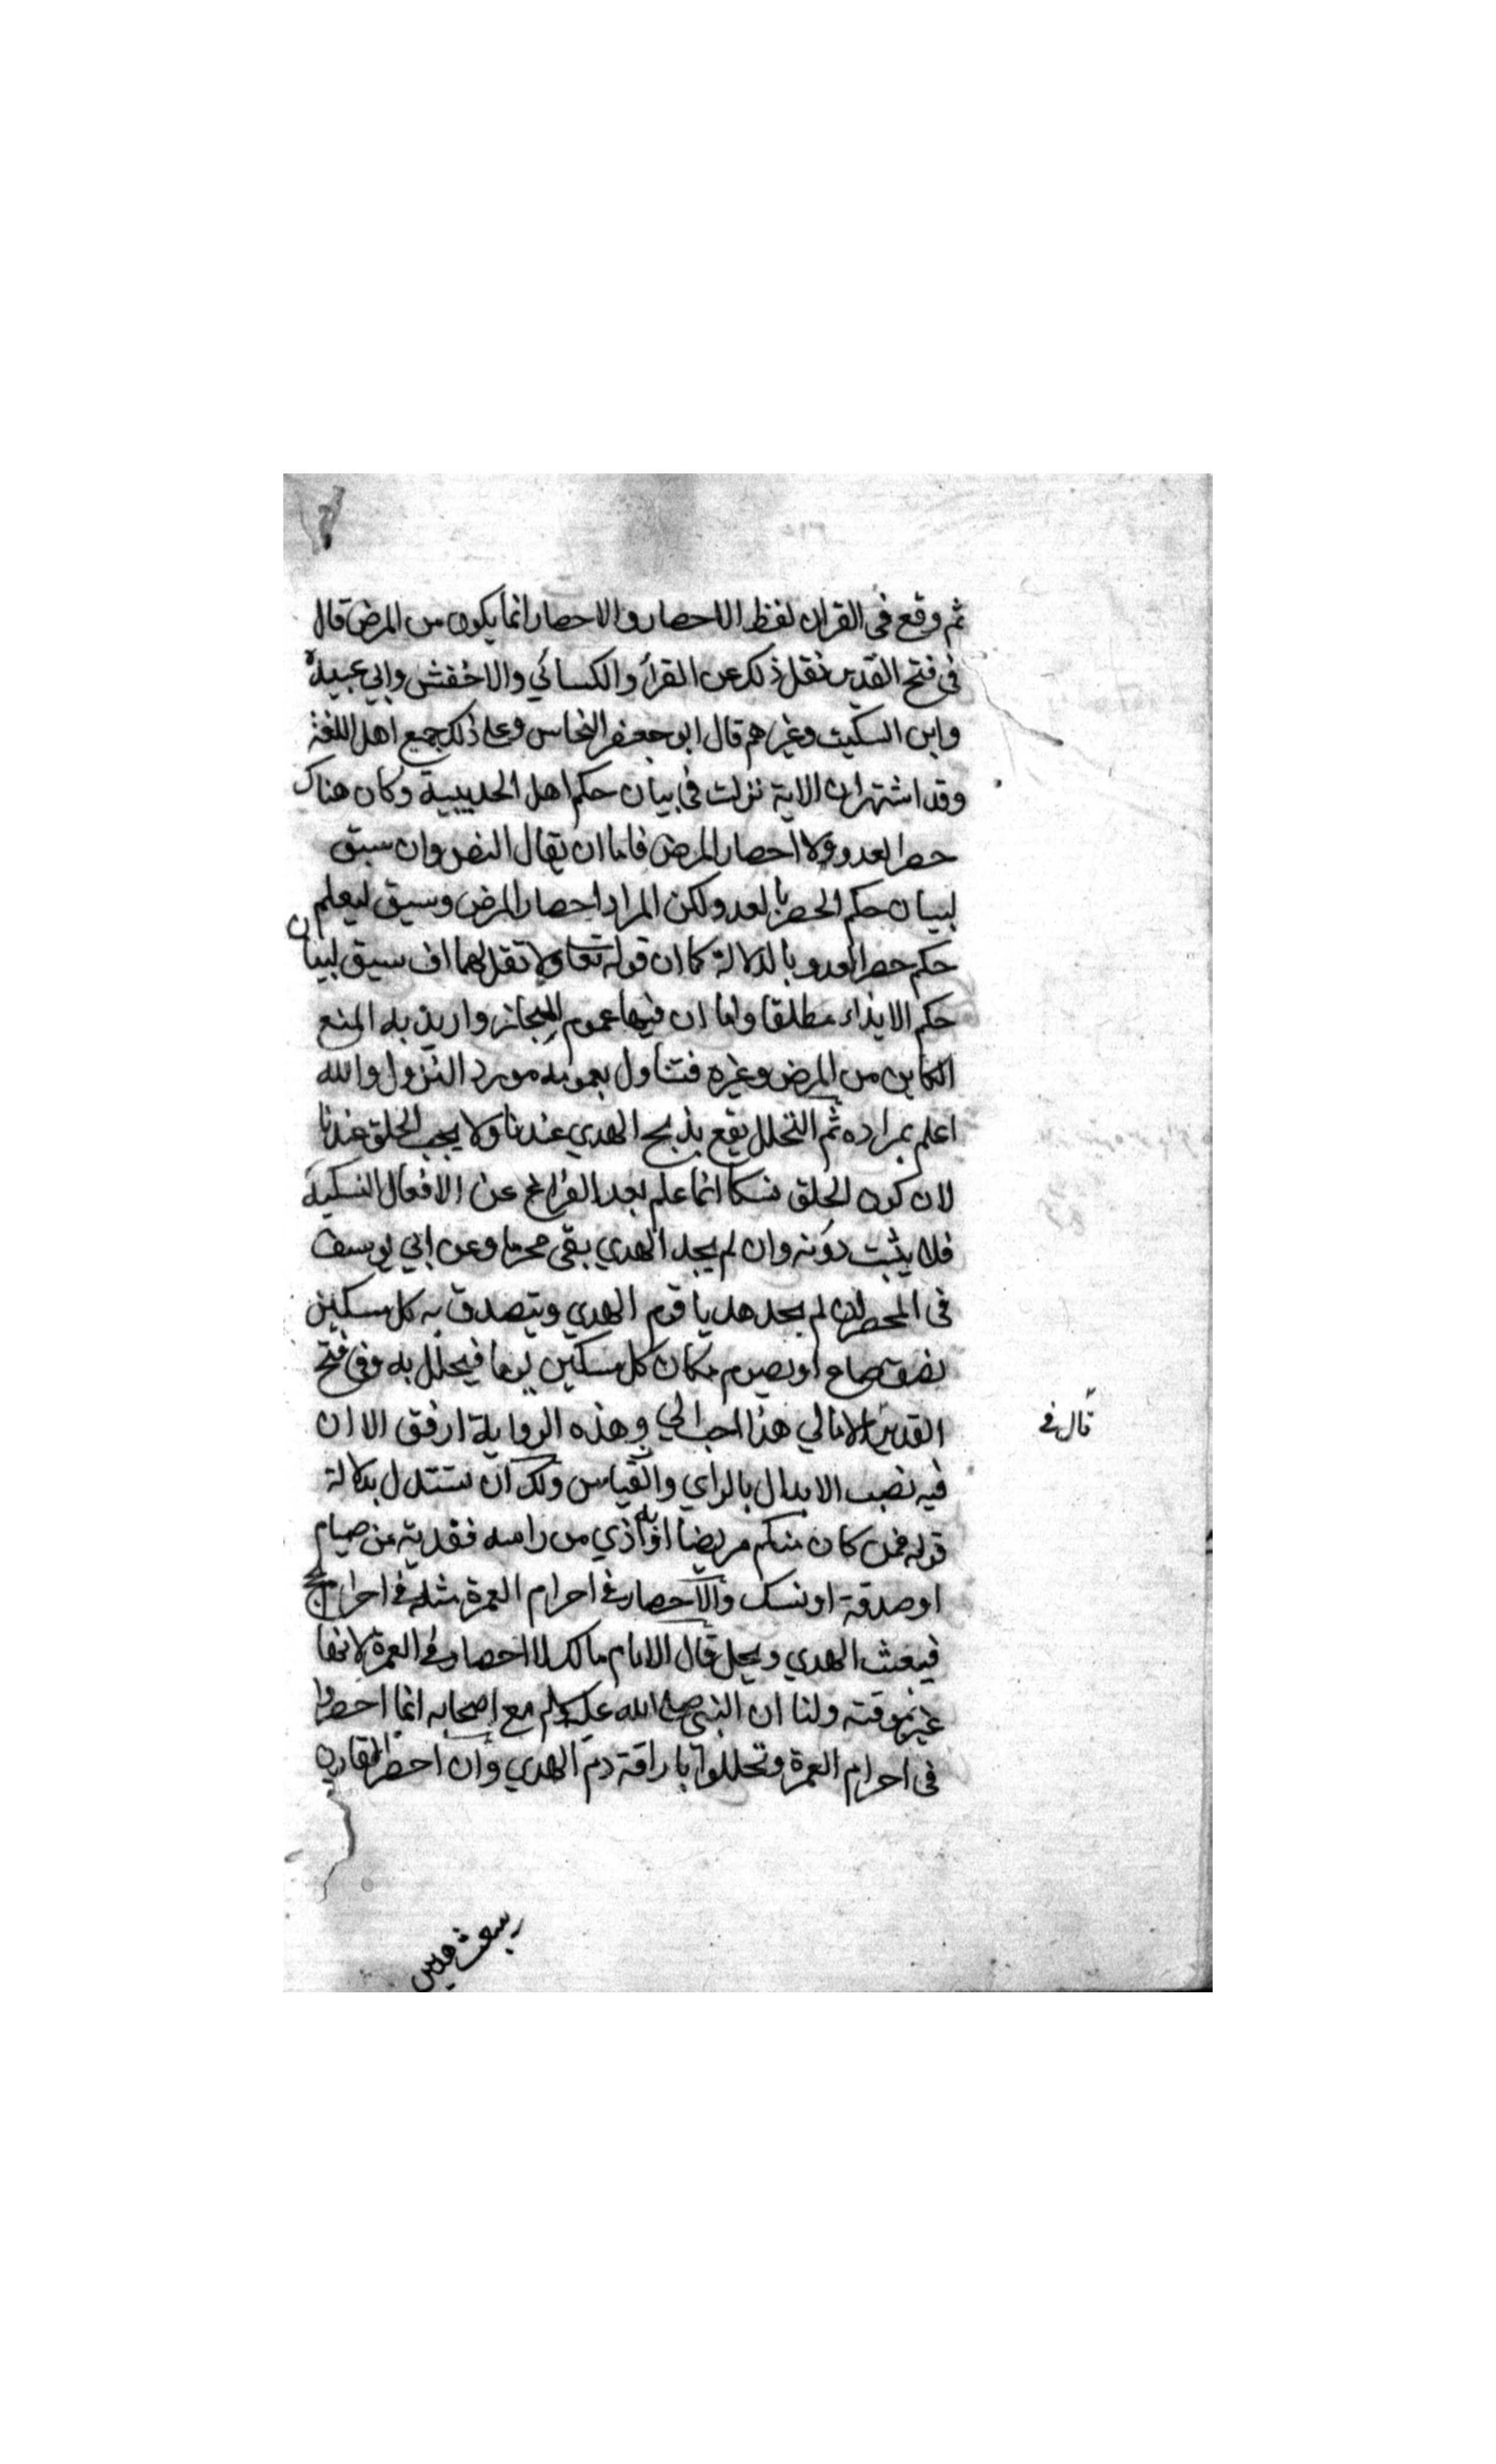 ثم وقع في القران لفظ الاحصار والاحصار انما يكون من المرض قال
في فتح القدير نقل ذلك عن الفرأ والكسائي والاخفش وابي عبيدة
وابن السكيت وغيرهم قال ابو جعفر النحاس وعلى ذلك جميع اهل اللغة
وقد اشتهر ان الاية نزلت في بيان حكم اهل الحديبية وكان هناك
حصر العدو ولا احصار المرض فاما ان يقال النص وان سبق
لبيان حكم الحصر بالعدو لكن المراد احصار المرض وسيق ليعلم
حكم حصر العدو بالدلالة كما ان قوله تعا ولا تقل لهما اف سيق لبيان
حكم الايذاء مطلقا واما ان فيها عموم المجاز واريد به المنع
الكاين من المرض وغيره فتناول بعمومه مورد النزول والله
اعلم بمراده ثم التحلل يقع بذبح الهدي عندنا ولا يجب الحلق عندنا
لان كون الحلق نسكا انما علم بعد الفراغ عن الافعال النسكية
فلا يثبت دونه وان لم يجد الهدي بقى محرما وعن ابي يوسف
في المحصر ان لم يجد هديا قوم الهدي ويتصدق به كل مسكين
نصف صاع او يصوم مكان كل مسكين يوما فيحلل به وفي فتح
القدير الامالي هذا احب الي وهذه الرواية ارفق الا ان
قال في
فيه نصب الابدال بالراي والقياس ولك ان تستدل بدلالة
قوله فمن كان منكم مريضا او به اذي من راسه ففدية من صيام
او صدقة او نسك والاحصار في احرام العمرة مثله في احرام الحج
فيبعث الهدي ويحل قال الامام مالك لا احصار في العمرة لانها
غير موقتة ولنا ان النبي صلى الله عليه وسلم مع اصحابه انما احصروا
في احرام العمرة وتحللوا باراقة دم الهدي وان احصر القارن
يبعث هديين